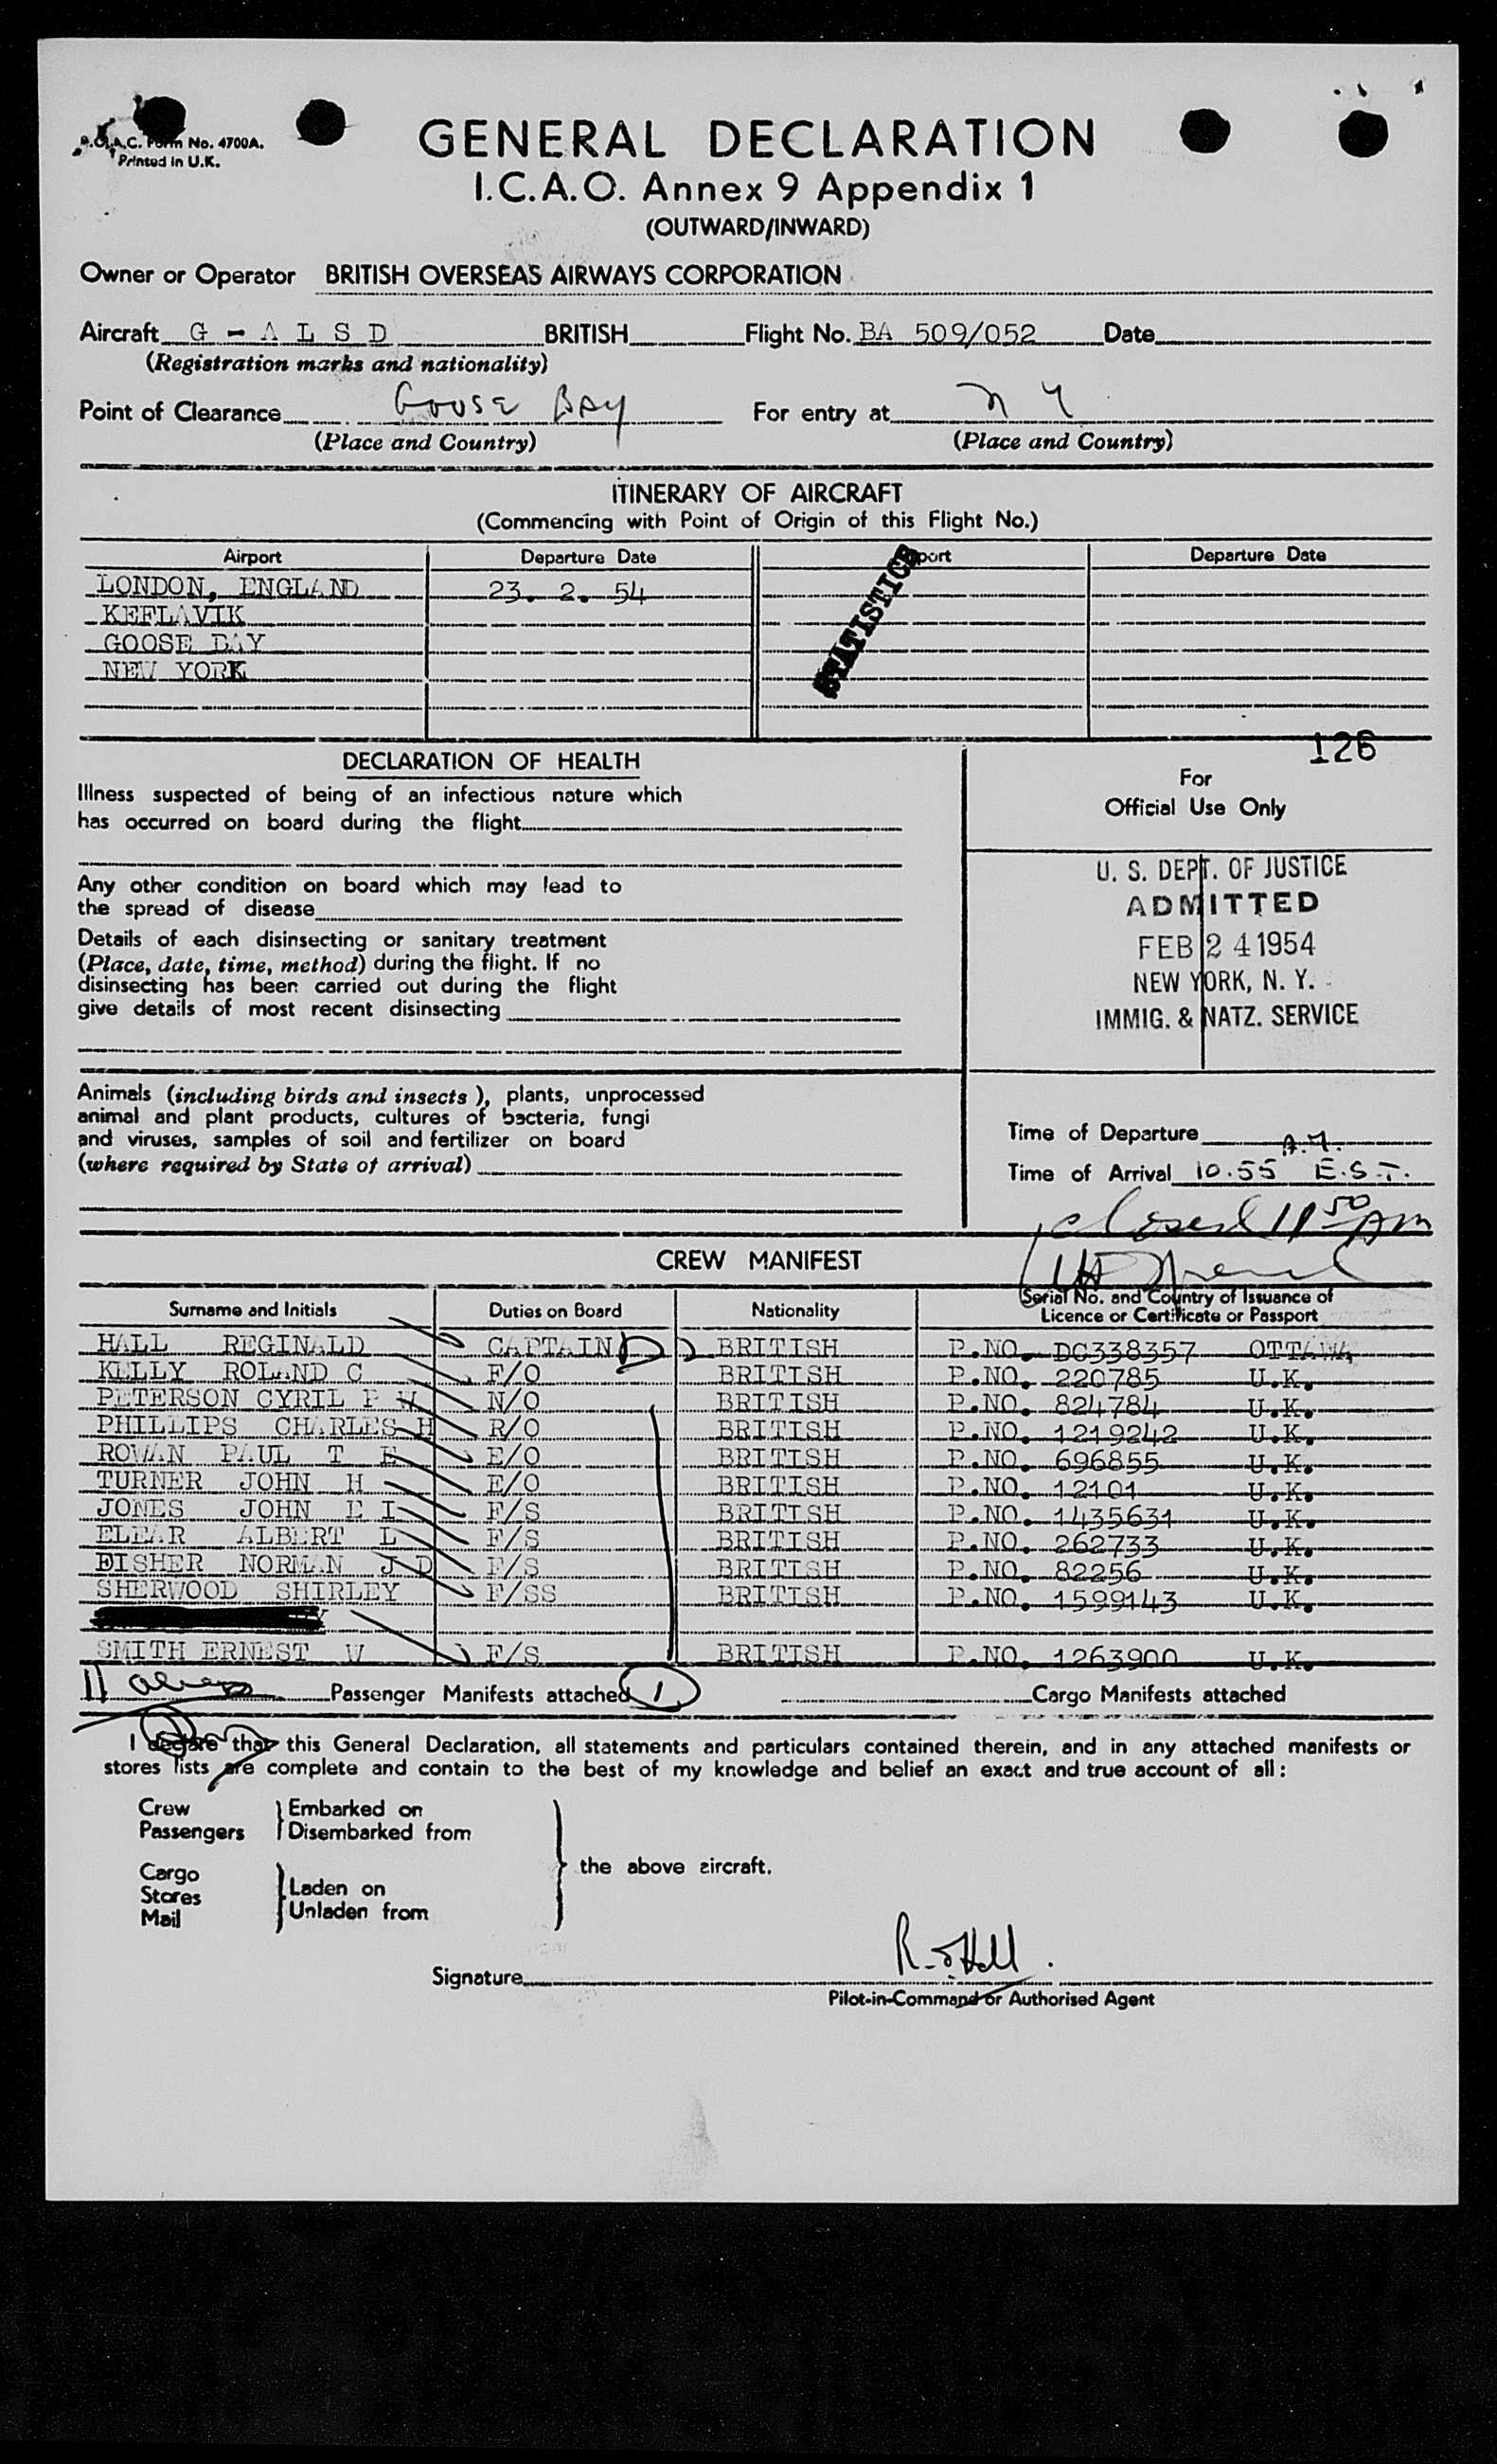 B.O.A.C. Form No. 4700A.
Printed in U.K.
GENERAL DECLARATION
I.C.A.O. Annex 9 Appendix 1
(OUTWARD/INWARD)
Owner or Operator BRITISH OVERSEAS AIRWAYS CORPORATION
Aircraft G - A L S D BRITISH Flight No. BA 509/052 Date
(Registration marks and nationality)
Point of Clearance Goose Bay For entry at N Y
(Place and Country) (Place and Country)
ITINERARY OF AIRCRAFT
(Commencing with Point of Origin of this Flight No.)
Airport Departure Date Airport Departure Date
LONDON, ENGLAND 23. 2. 54
KEFLAVIK
GOOSE BAY
NEW YORK
STATISTICS
126
DECLARATION OF HEALTH
Illness suspected of being of an infectious nature which
has occurred on board during the flight
Any other condition on board which may lead to
the spread of disease
Details of each disinsecting or sanitary treatment
(Place, date, time, method) during the flight. If no
disinsecting has been carried out during the flight
give details of most recent disinsecting
Animals (including birds and insects), plants, unprocessed
animal and plant products, cultures of bacteria, fungi
and viruses, samples of soil and fertilizer on board
(where required by State of arrival)
For
Official Use Only
U. S. DEPT. OF JUSTICE
ADMITTED
FEB 24 1954
NEW YORK, N. Y.
IMMIG. & NATZ. SERVICE
Time of Departure
A.M.
Time of Arrival 10.55 E.S.T.
closed 11 50 AM
CREW MANIFEST
Surname and Initials Duties on Board Nationality Serial No. and Country of Issuance of
Licence or Certificate or Passport
HALL REGINALD CAPTAIN BRITISH P.NO. DC338357 OTTAWA
KELLY ROLAND C F/O BRITISH P.NO. 220785 U.K.
PETERSON CYRIL P W N/O BRITISH P.NO. 824784 U.K.
PHILLIPS CHARLES H R/O BRITISH P.NO. 1219242 U.K.
ROWAN PAUL T E E/O BRITISH P.NO. 696855 U.K.
TURNER JOHN H E/O BRITISH P.NO. 12101 U.K.
JONES JOHN E I F/S BRITISH P.NO. 1435631 U.K.
ELEAR ALBERT L F/S BRITISH P.NO. 262733 U.K.
DISHER NORMAN J D F/S BRITISH P.NO. 82256 U.K.
SHERWOOD SHIRLEY F/SS BRITISH P.NO. 1599143 U.K.
SMITH ERNEST W F/S BRITISH P.NO. 1263900 U.K.
11 aliens Passenger Manifests attached 1 Cargo Manifests attached
I declare that this General Declaration, all statements and particulars contained therein, and in any attached manifests or
stores lists are complete and contain to the best of my knowledge and belief an exact and true account of all:
Crew Embarked on
Passengers Disembarked from
the above aircraft.
Cargo
Stores Laden on
Mail Unladen from
Signature R. Hall
Pilot-in-Command or Authorised Agent